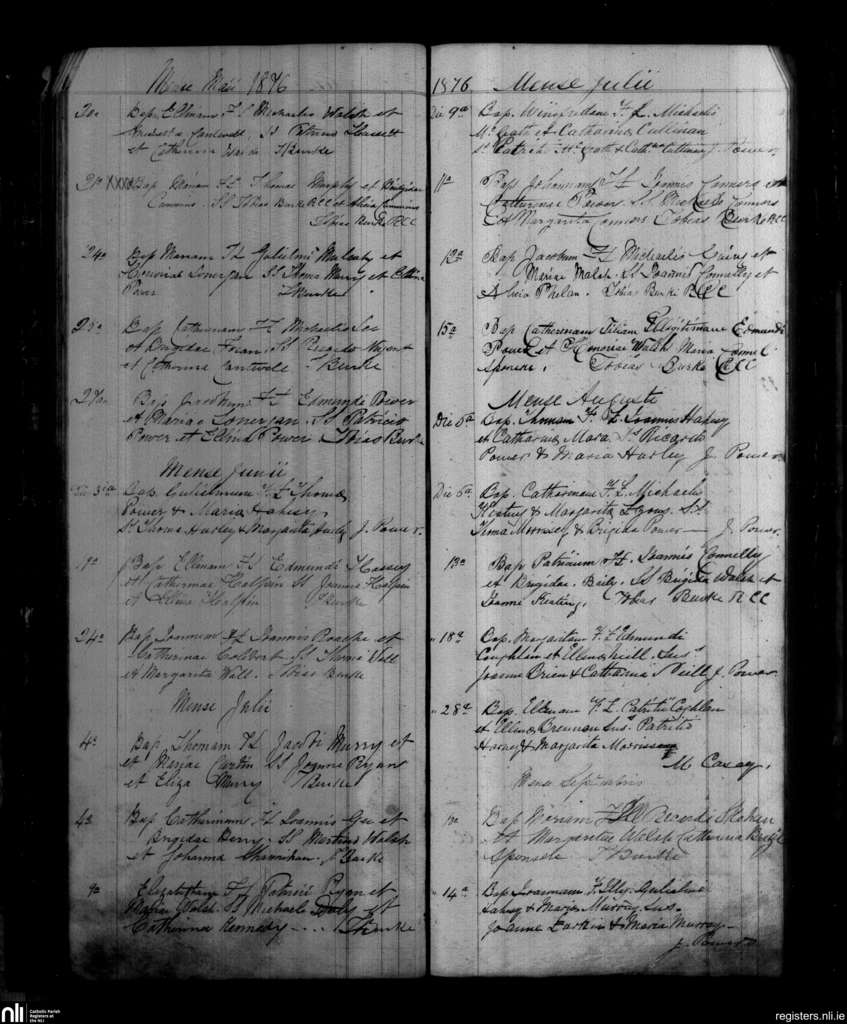 Mense Maii 1876
20a Bap. Ellenam F L Michaelis Walsh et
SS Patricius
et Catherina T Burke
21a XXXX Bap Mariam F L Thomas Murphy et Brigidae
SS Tobias Burke RCC et Alicia
Tobias Burke RCC
24a Bap Mariam F L Gulielmi Mulcahy et
Honoriae Lonergan SS Thoma Murry et Ellena
Power T Burke
Bap F L Michaelis
et Brigidae SS Ricardo Nugent
et Catherina Cantwell T Burke
27a Bap Jacobum F L Edmundi Power
et Mariae Lonergan. SS Patricio
Power et Ellena Power Tobias Burke
Mense Junii
Die Bap. Gulielmum F. L Thomae
Power & Maria Fahey.
Ss Thoma Hurley & Margarita Hurley J. Power.
19a Bap Ellenam F L Edmundi Hassey
et Catherinae Halpin SS Joannes Halpin
et Ellena Halpin T Burke
24a Bap Joannem F L Joannis Roache et
Catherinae SS Thoma Wall
et Margarita Wall. Tobias Burke
Mense Julii
4a Bap Thomam F L Jacobi Murry et
et Mariae Martin SS Joanne Ryan
et Eliza Murry T Burke
4a Bap Catherinam F L Joannis Gee et
Brigidae Berry. SS Martino Walsh
et Johanna Shanahan. T Burke
9a Elizabetham F L Patricii Ryan et
Mariae Walsh. SS Michaele Daly et
Catherina Kennedy - . . . T Burke
1876 Mense Julii
Die 9a Bap. Winefridam F. L. Michaelis
McGrath et Catharinae Cullinan
Ss Patrick McGrath & Cathe Cullinan J. Power.
11a Bap Johannam F L Joannis Connors et
Catherinae Power. SS Michaele Connors
et Margarita Connors Tobias Burke RCC
12a Bap Jacobum F L Michaelis et
Mariae Walsh. SS Joannes Connelly et
Alicia Phelan. Tobias Burke RCC
15a Bap Catherinam Filiam Illegitimam Edmundi
Power et Honoriae Walsh Maria
Sponsae. Tobias Burke RCC
Mense Augusti
Die 5a Bap. Thomam F. L Joannis Fahey
et Catharina Mara. Ss Ricardo
Power & Maria Hurley J. Power
Die 5a Bap. Catharinam F. L. Michaelis
Keating & Margarita Lyons. Ss.
Thoma Morrisey & Brigida Power — J. Power.
13a Bap Patricium F L. Joannis Connelly
et Brigidae Baily. SS Brigida Walsh et
Joanne Keating. Tobias Burke RCC
" 18a Bap. Margaritam F. L Edmundi
Coughlan et Ellena Neill. Sus.
Joanne Brien & Catharina Neill J. Power.
" 28a Bap. Ellenam F. L. Patritii Coghlan
et Ellena Brennan Sus. Patritio
Harney & Margarita Morrissey
M Casey.
Mense Septembris
Bap Mariam F L Ricardi Skehan
et Margaritae Walsh Catherina
Sponsae T Burke
" 14a Bap Joannem F. Illeg. Gulielmi
Fahey & Maria Murray Sus.
Joanne Larkin & Maria Murray —
J. Power
nli Catholic Parish
Registers at
the NLI
registers.nli.ie